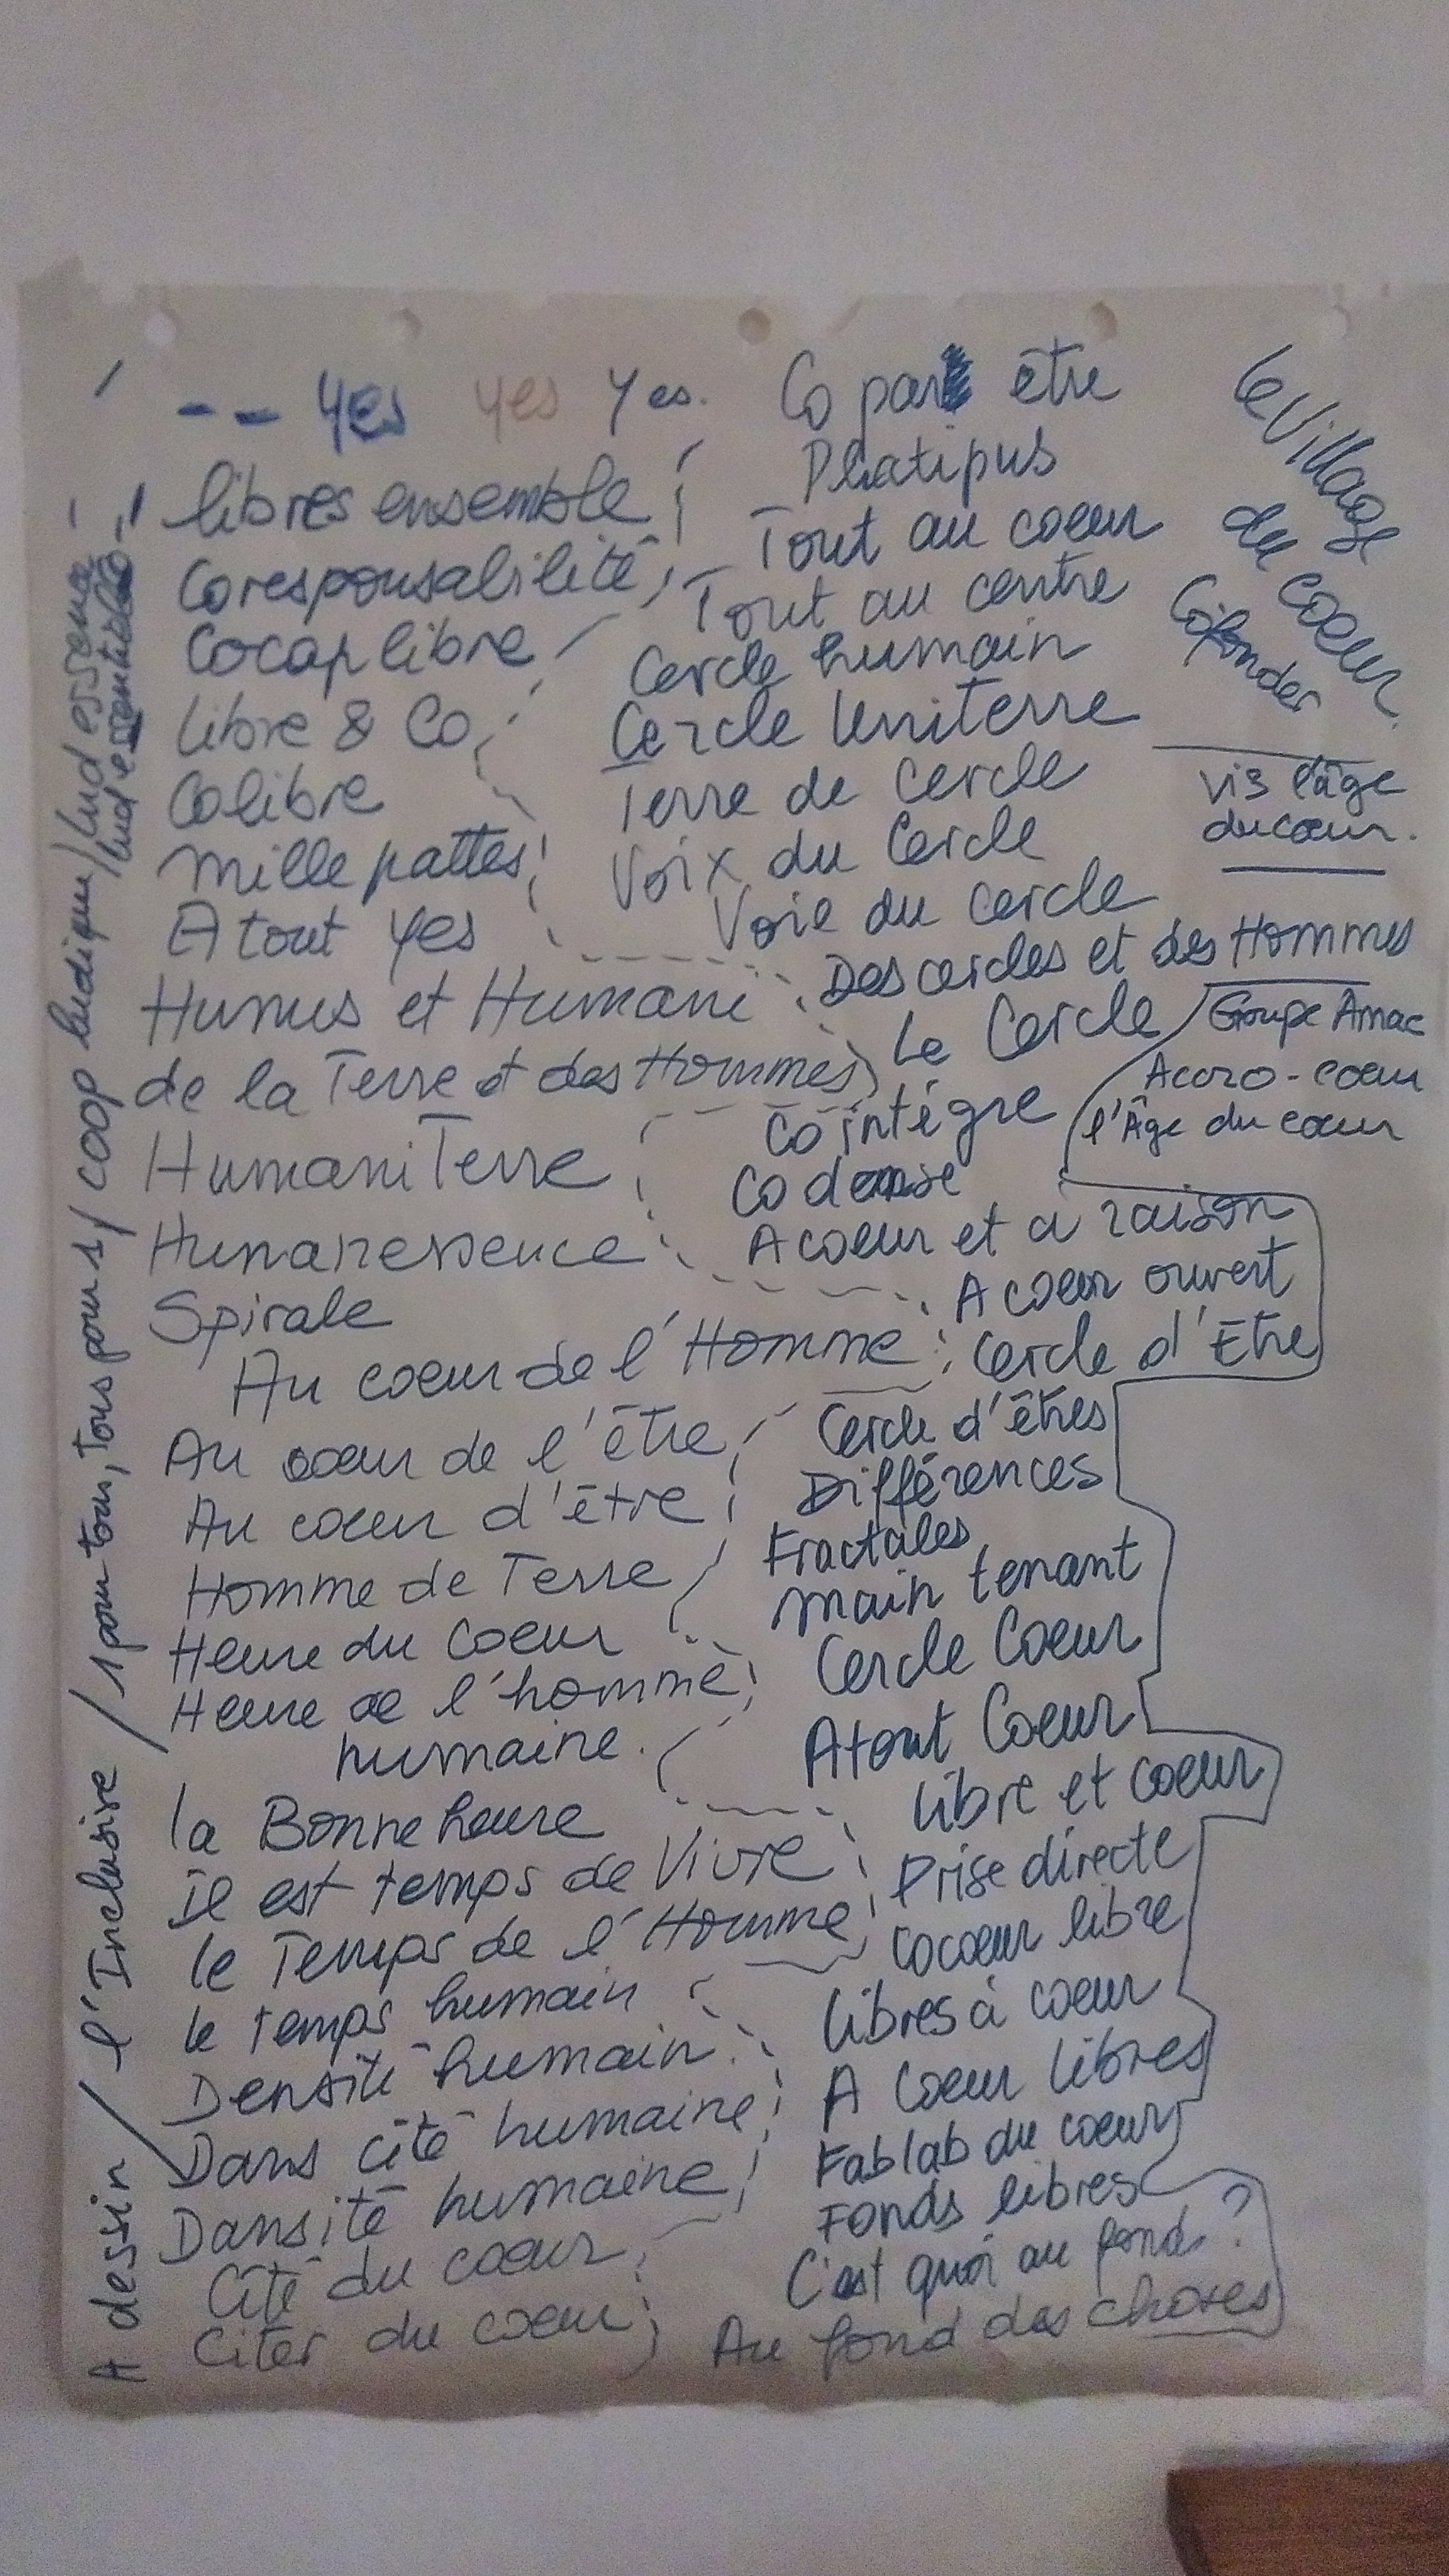 -- Yes yes yes.
libres ensemble
Coresponsabilité
Cocap libre
libre & Co
Colibre
Mille pattes
A tout yes
Humus et Humani
de la Terre et des Hommes
HumaniTerre
Humanessence
Spirale
Au coeur de l'Homme
Au coeur de l'être
Au coeur d'être
Homme de Terre
Heure du Coeur
Heure de l'homme
humaine.
la Bonne heure
il est temps de Vivre
le Temps de l'Homme
le temps humain
Densité humain
Dans cité humaine
Dansité humaine
Cité du coeur
Citer du coeur
Co par être
Platipus
Tout au coeur
Tout au centre
Cercle humain
Cercle Uniterre
Terre de Cercle
Voix du Cercle
Voie du cercle
Des cercles et des Hommes
Le Cercle
Co intègre
Co danse
A coeur et à raison
A coeur ouvert
Cercle d'Etre
Cercle d'êtres
Différences
Fractales
Main tenant
Cercle Coeur
Atout Coeur
libre et coeur
Prise directe
Cocoeur libre
libres à coeur
A Coeur libres
Fablab du coeur
Fonds libres
C'est quoi au fond ?
Au fond des choses
Le Village
du coeur
Cofonder
Vis l'âge
du coeur.
Groupe Amac
Accro-coeur
l'Âge du coeur
A dessin / l'Inclusire / 1 pour tous, tous pour 1 / coop ludique / lud essence
lud essentielle